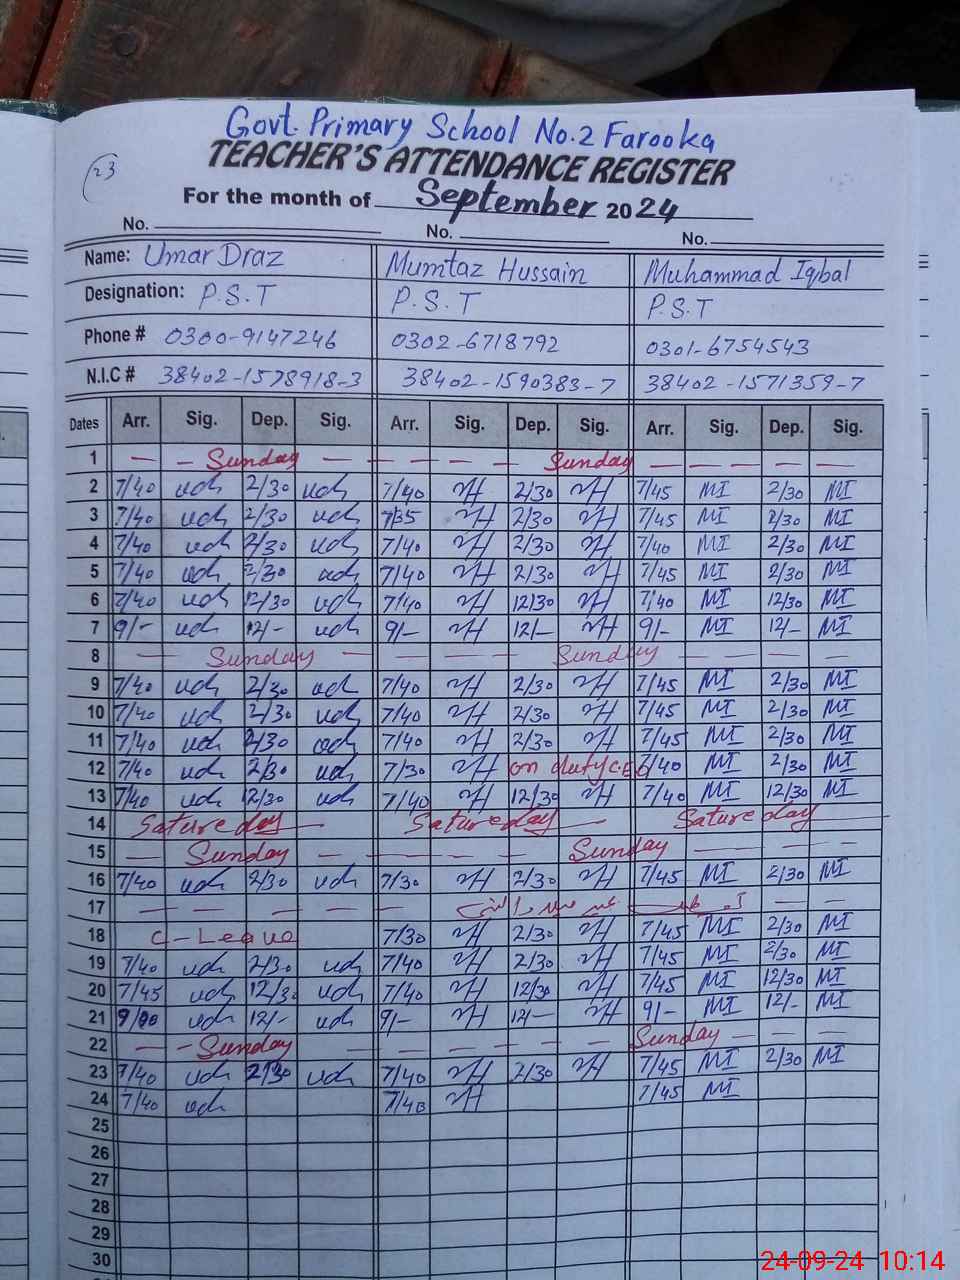 Govt. Primary School No.2 Farooka
23
TEACHER'S ATTENDANCE REGISTER
For the month of September 2024
No. No. No.
Name: Umar Draz Mumtaz Hussain Muhammad Iqbal
Designation: P.S.T P.S.T P.S.T
Phone # 0300-9147246 0302-6718792 0301-6754543
N.I.C # 38402-1578918-3 38402-1590383-7 38402-1571359-7
Dates Arr. Sig. Dep. Sig. Arr. Sig. Dep. Sig. Arr. Sig. Dep. Sig.
1 — - Sunday — — — — — — Sunday — — — — —
2 7/40 udh 2/30 udh 7/40 MH 2/30 MH 7/45 MI 2/30 MI
3 7/40 udh 2/30 udh 7/35 MH 2/30 MH 7/45 MI 2/30 MI
4 7/40 udh 2/30 udh 7/40 MH 2/30 MH 7/40 MI 2/30 MI
5 7/40 udh 2/30 udh 7/40 MH 2/30 MH 7/45 MI 2/30 MI
6 7/40 udh 12/30 udh 7/40 MH 12/30 MH 7/40 MI 12/30 MI
7 9/- udh 12/- udh 9/- MH 12/- MH 9/- MI 12/- MI
8 — Sunday — — — — Sunday — — — —
9 7/40 udh 2/30 udh 7/40 MH 2/30 MH 7/45 MI 2/30 MI
10 7/40 udh 2/30 udh 7/40 MH 2/30 MH 7/45 MI 2/30 MI
11 7/40 udh 2/30 udh 7/40 MH 2/30 MH 7/45 MI 2/30 MI
12 7/40 udh 2/30 udh 7/30 MH on duty C.EO 7/40 MI 2/30 MI
13 7/40 udh 12/30 udh 7/40 MH 12/30 MH 7/40 MI 12/30 MI
14 Satureday — Satureday — Satureday —
15 — Sunday — — — — — Sunday — — — -
16 7/40 udh 2/30 udh 7/30 MH 2/30 MH 7/45 MI 2/30 MI
17 — — — — — — عید میلاد النبی — —
18 C-Leave 7/30 MH 2/30 MH 7/45 MI 2/30 MI
19 7/40 udh 2/30 udh 7/40 MH 2/30 MH 7/45 MI 2/30 MI
20 7/45 udh 12/30 udh 7/40 MH 12/30 MH 7/45 MI 12/30 MI
21 9/00 udh 12/- udh 9/- MH 12/- MH 9/- MI 12/- MI
22 — - Sunday — — — — — — Sunday — — —
23 7/40 udh 2/30 udh 7/40 MH 2/30 MH 7/45 MI 2/30 MI
24 7/40 udh 7/40 MH 7/45 MI
25
26
27
28
29
30
24-09-24 10:14